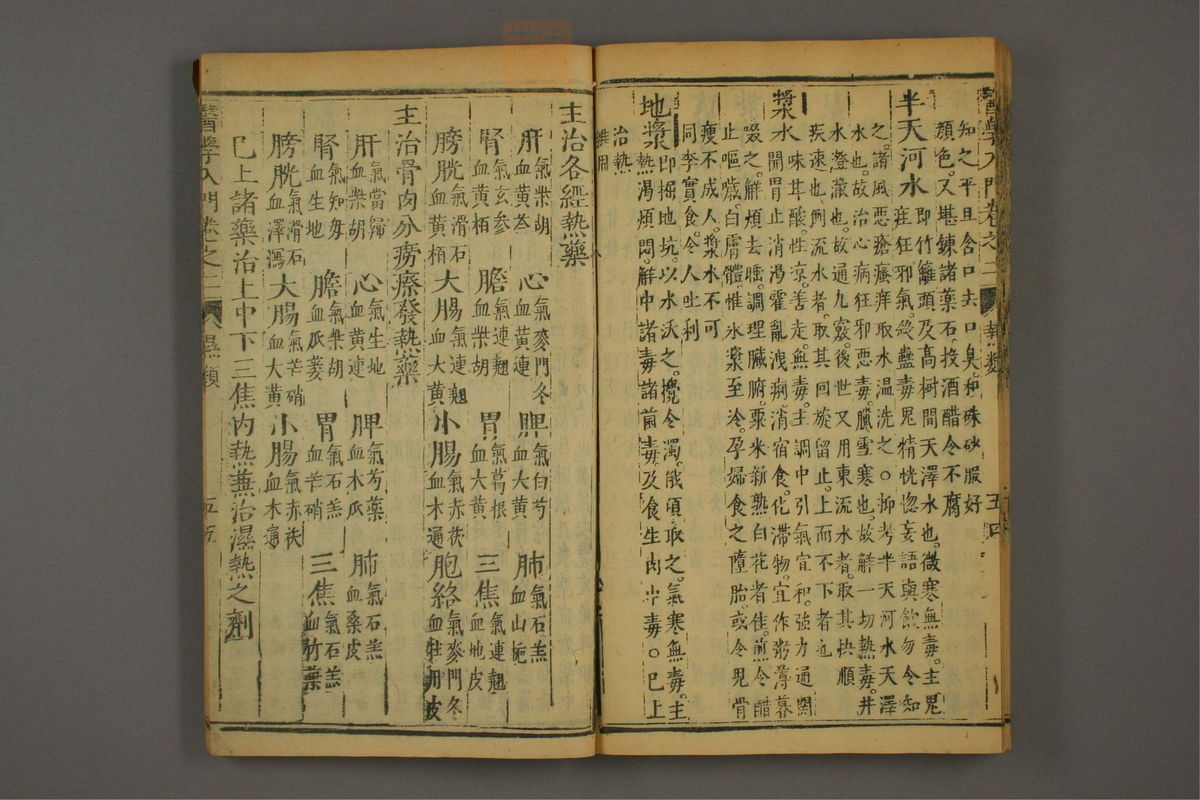 醫學入門卷之二 熱類 五四
知之平旦含口去口臭和硃砂服好
顏色又堪鍊諸藥石投酒醋令不腐
半天河水即竹籬頭及高樹間天澤水也微寒無毒主鬼
疰狂邪氣殺蠱毒鬼精恍惚妄語與飲勿令知
之諸風惡瘡瘙痒取水温洗之○抑考半天河水天澤
水也故治心病狂邪惡毒臘雪寒也故解一切熱毒井
水澄徹也故通九竅後世又用東流水者取其快順
疾速也用流水者取其回旋留止上而不下者也
漿水味甘酸性涼善走無毒主調中引氣宜和強力通關
開胃止消渴霍亂洩痢消宿食化滯物宜作粥薄暮
啜之解煩去睡調理臟腑粟米新熟白花者佳煎令醋
止嘔噦白膚體惟氷漿至冷孕婦食之墮胎或令兒骨
瘦不成人漿水不可
同李實食令人吐利
地漿即掘地坑以水沃之攪令濁俄頃取之氣寒無毒主
熱渴煩悶解中諸毒諸菌毒及食生肉中毒○已上
治熱
雜用
主治各經熱藥
肝氣柴胡血黃芩 心氣麥門冬血黃連 脾氣白芍血大黃 肺氣石羔血山梔
腎氣玄參血黃栢 膽氣連翹血柴胡 胃氣葛根血大黃 三焦氣連翹血地皮
膀胱氣滑石血黃栢 大腸氣連翹血大黃 小腸氣赤茯血木通 胞絡氣麥門冬血牡丹皮
主治骨肉分癆瘵發熱藥
肝氣當歸血柴胡 心氣生地血黃連 脾氣芍藥血木瓜 肺氣石羔血桑皮
腎氣知毋血生地 膽氣柴胡血瓜蔞 胃氣石羔血芒硝 三焦氣石羔血竹葉
膀胱氣滑石血澤瀉 大腸氣芒硝血大黃 小腸氣赤茯血木通
已上諸藥治上中下三焦內熱兼治濕熱之劑
醫學入門卷之二 濕類 五五